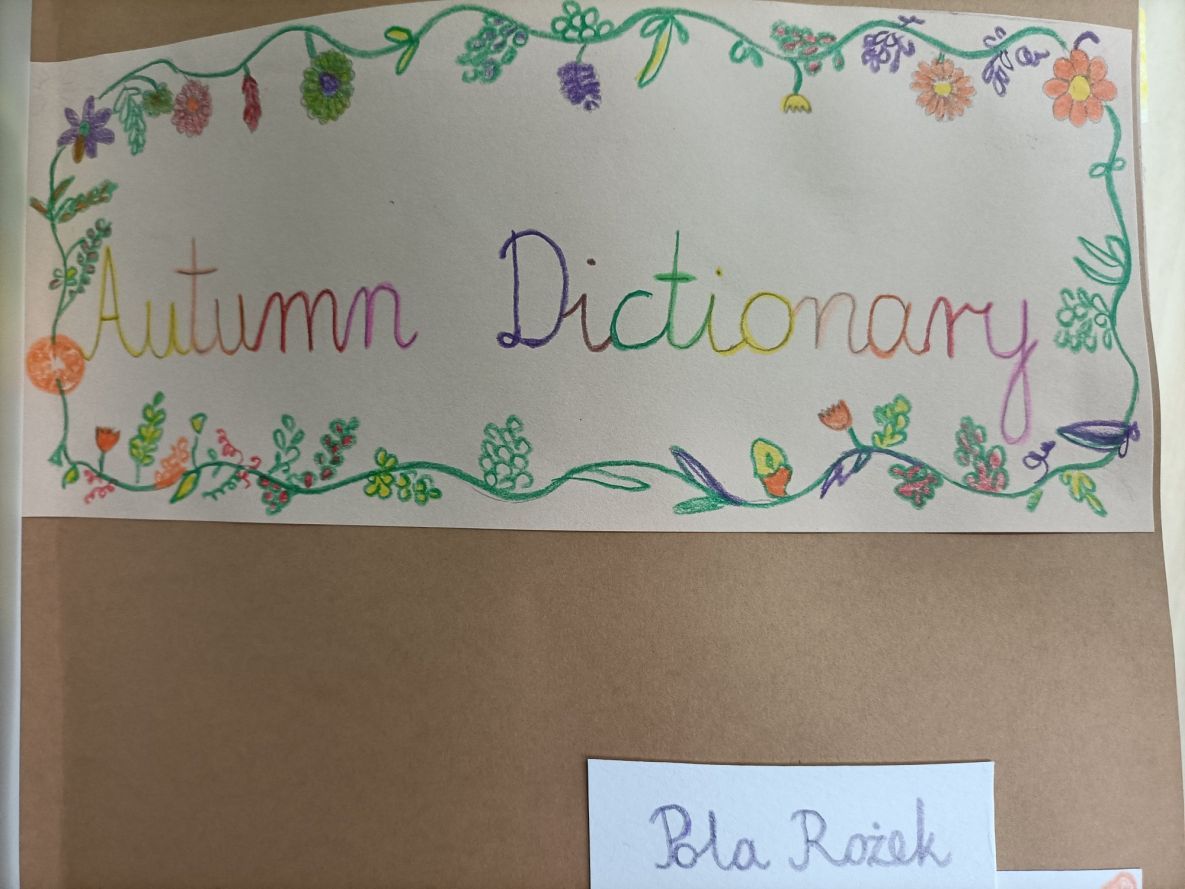 Autumn Dictionary
Pola Rożek